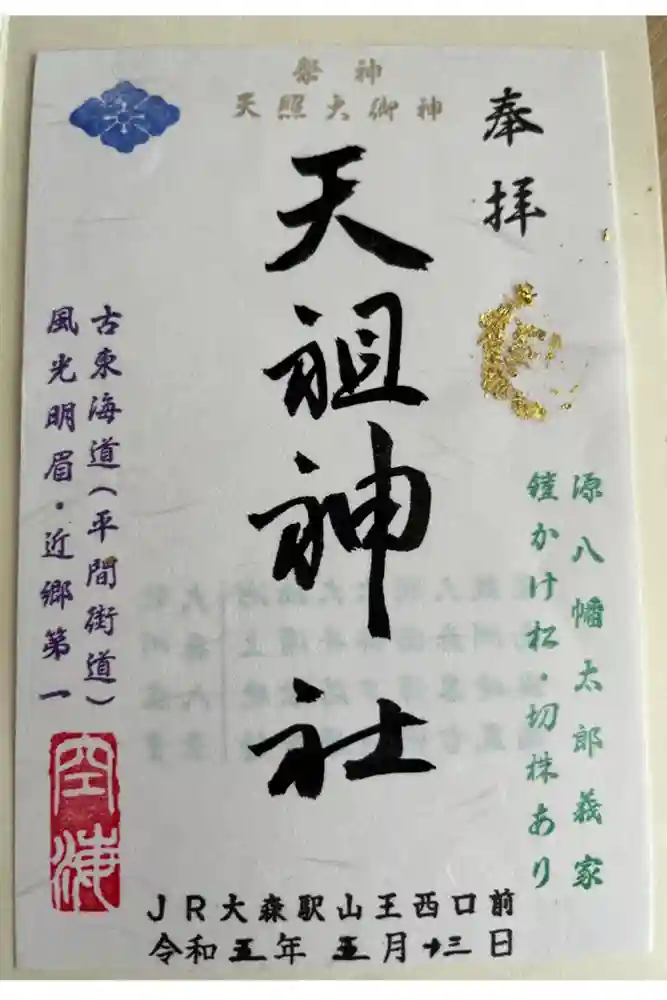 奉拝
祭神
天照大御神
天祖神社
源八幡太郎義家
鎧かけ松・切株あり
古東海道(平間街道)
風光明眉・近郷第一
空海
JR大森駅山王西口前
令和五年五月十三日